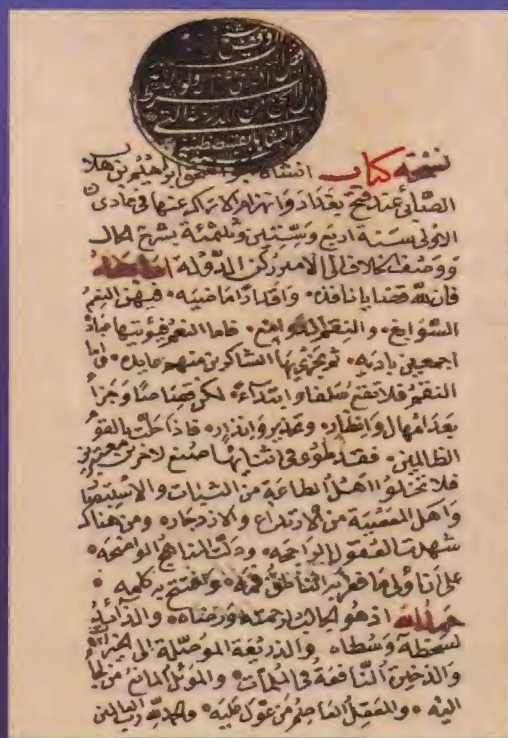 نسخة كتاب انشاه ابو اسحق ابراهيم بن هلال
الصابي عند فتح بغداد وانهزام الاتراك عنها في جمادى
الاولى سنة اربع وستين وثلثمئة بشرح الحال
ووصف الخلاف الى الامير ركن الدولة اما بعد
فان لله قضايا نافذه واقدارا ماضيه فيهن النعم
السوابغ والنقم فاما النعم فيؤتيها عباده
اجمعين باديه ثم يجزي بها الشاكرين منهم عايده واما
النقم فلا تقع سلفا وابتداء لكن قصاصا وجزاء
بعد امهال وانظار وتحذير وانذار فاذا حلت بالقوم
الظالمين فقد طوى في اثنائها صنع لاخرين معتبرين
فلا تخلوا اهل الطاعة من الثبات والاستبصار
واهل المعصية من الارتداع والازدجار ومن هناك
شهدت العقول الراجحه ودلت المناهج الواضحه
على ان اولى ما فغر به الناطق فمه وافتتح به كلمه
حمد الله اذ هو الجالب لرحمته ورضاه والذائد
لسخطه وسطاه والذريعة الموصلة الى الخيرات
والذخيرة النافعة في الملمات والموئل المانع من لجأ
اليه والمعقل العاصم من عول عليه والحمد لله رب العالمين